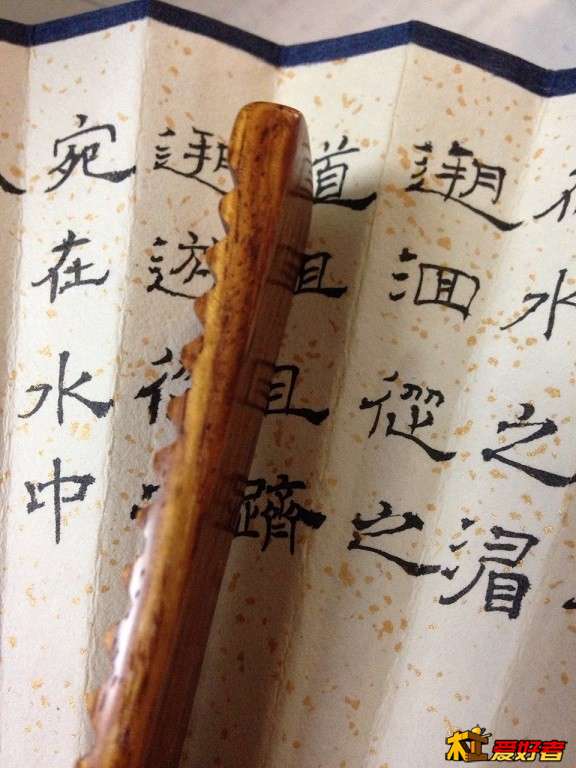 水之湄
遡洄從之
道阻且躋
遡遊從
宛在水中
木工爱好者